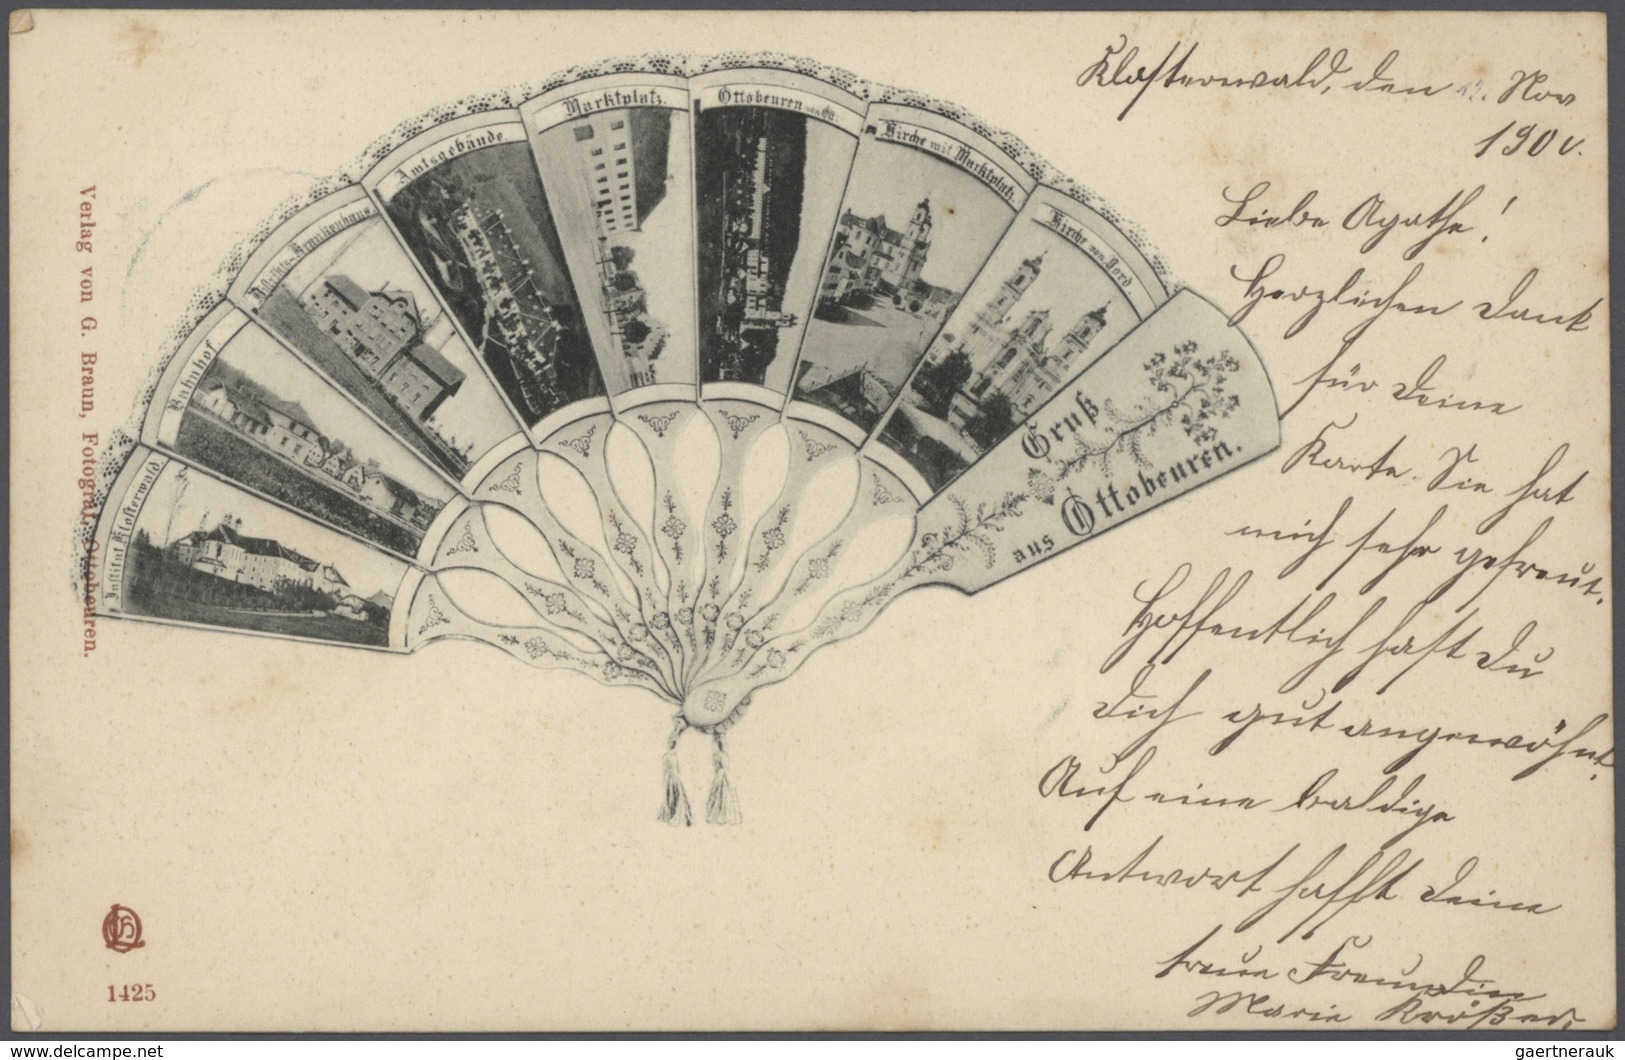 Klosterwald, den 12. Nov
1900.
Liebe Agathe!
Herzlichen Dank
für Deine
Karte. Sie hat
mich sehr gefreut.
Hoffentlich hast Du
Dich gut angewöhnt.
Auf eine baldige
Antwort hofft Deine
treue Freundin
Marie
Institut Klosterwald
Bahnhof
Distrikts-Krankenhaus
Amtsgebäude.
Marktplatz.
Ottobeuren von Ost.
Kirche mit Marktplatz.
Kirche von Nord
Gruß
aus Ottobeuren.
Verlag von G. Braun, Fotograf, Ottobeuren.
1425
www.delcampe.net
gaertnerauk